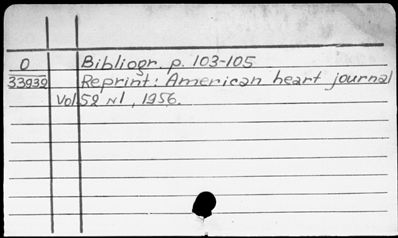 O Bibliogr. p. 103-105
33939 Reprint: American heart journal
Vol 52 N1, 1956.